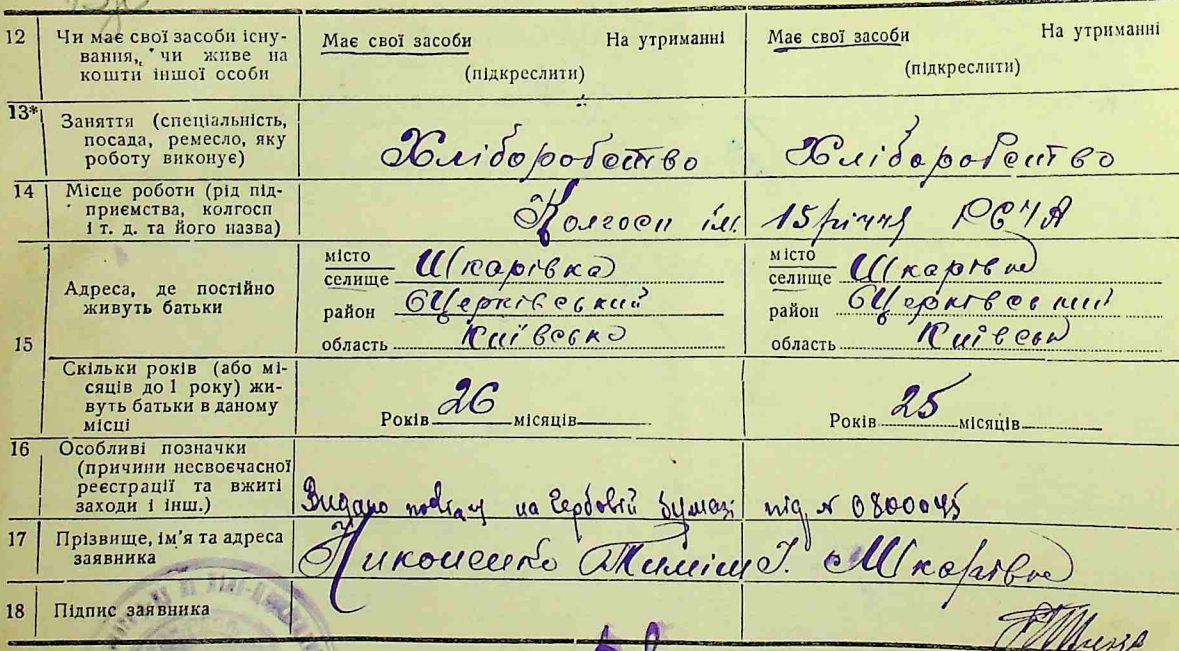 12 Чи має свої засоби існу- Має свої засоби На утриманні Має свої засоби На утриманні
вання, чи живе на
кошти іншої особи (підкреслити) (підкреслити)
13* Заняття (спеціальність,
посада, ремесло, яку
роботу виконує) Хліборобство Хліборобство
14 Місце роботи (рід під-
приємства, колгосп
і т. д. та його назва) Колгосп ім. 15 річчя РСЧА
15 Адреса, де постійно
живуть батьки
місто
селище Шкарівка
район БЦерківський
область Київсько
місто
селище Шкарівка
район БЦерківський
область Київськ
Скільки років (або мі-
сяців до 1 року) жи-
вуть батьки в даному
місці Років 26 місяців Років 25 місяців
16 Особливі позначки
(причини несвоєчасної
реєстрації та вжиті
заходи і інш.) Видано на Гербовій бумазі під № 0800045
17 Прізвище, ім'я та адреса
заявника Никоненко Тиміш І. Шкарівка
18 Підпис заявника